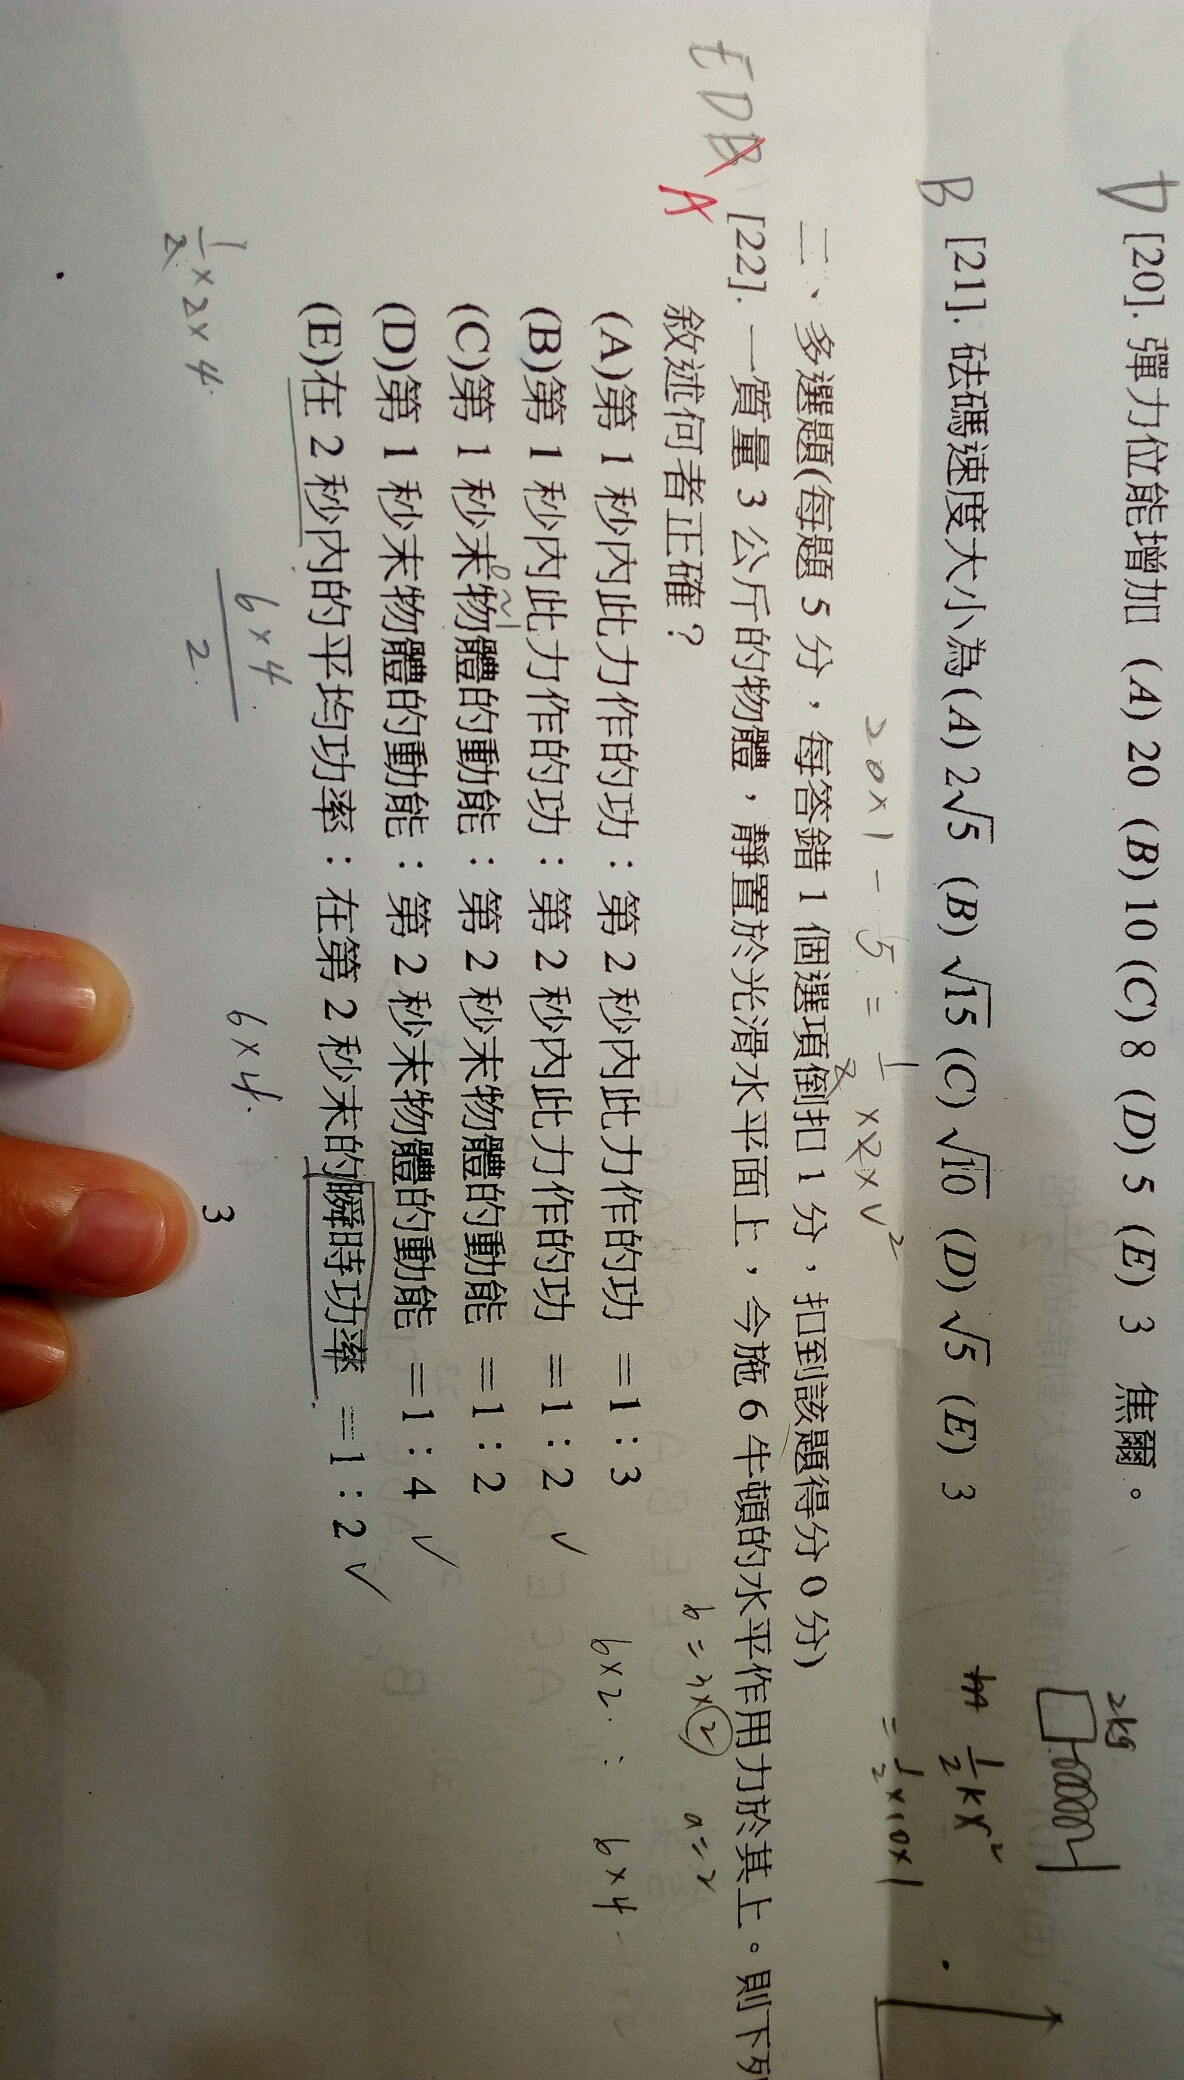 D [20]. 彈力位能增加 (A) 20 (B) 10 (C) 8 (D) 5 (E) 3 焦爾。
2kg
B [21]. 砝碼速度大小為 (A) 2√5 (B) √15 (C) √10 (D) √5 (E) 3
1/2 kx²
= 1/2 ×10×1
20×1 - 5 = 1/2 ×2×v²
二、多選題(每題 5 分，每答錯 1 個選項倒扣 1 分，扣到該題得分 0 分)
EDB A [22]. 一質量 3 公斤的物體，靜置於光滑水平面上，今施 6 牛頓的水平作用力於其上。則下列
敘述何者正確？
6=3×2 a=2
(A)第 1 秒內此力作的功：第 2 秒內此力作的功 =1：3
6×2 : 6×4
(B)第 1 秒內此力作的功：第 2 秒內此力作的功 =1：2 ✓
0~1
(C)第 1 秒末物體的動能：第 2 秒末物體的動能 =1：2
(D)第 1 秒末物體的動能：第 2 秒末物體的動能 =1：4 ✓
(E)在 2 秒內的平均功率：在第 2 秒末的瞬時功率 =1：2 ✓
6×4/2
6×4
1/2 ×2×4
3